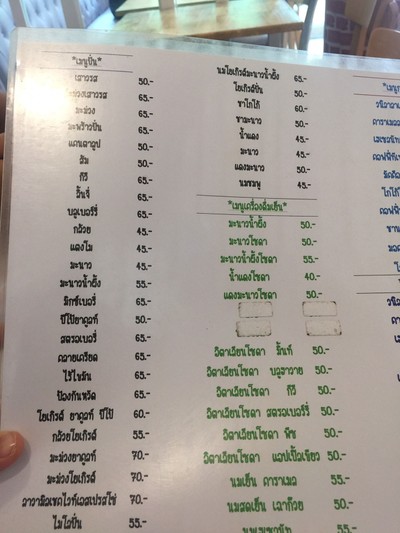 "เมนูปั่น"
เสาวรส 50.-
มะม่วงเสาวรส 60.-
มะม่วง 65.-
มะพร้าวปั่น 65.-
แคนตาลูป 50.-
ส้ม 50.-
กีวี 65.-
ลิ้นจี่ 65.-
บลูเบอร์รี่ 65.-
กล้วย 45.-
แตงโม 45.-
มะนาว 45.-
มะนาวน้ำผึ้ง 55.-
มิกซ์เบอรี่ 65.-
ปีโป้ยาคูลท์ 50.-
สตรอเบอรี่ 65.-
คลายเครียด 65.-
ไร้ไขมัน 65.-
ป้องกันหวัด 65.-
โยเกิรส์ ยาคูลท์ ปีโป้ 60.-
กล้วยโยเกิรส์ 55.-
มะม่วงยาคูลท์ 70.-
มะม่วงโยเกิรส์ 70.-
ลาวามิลเชคไวท์เอสเปรสโซ่ 70.-
ไมโลปั่น 55.-
นมโยเกิรส์มะนาวน้ำผึ้ง 65.-
โยเกิรส์ปั่น 50.-
ชาโกโก้ 60.-
ชามะนาว 50.-
น้ำแดง 45.-
มะนาว 45.-
แดงมะนาว 50.-
นมชมพู 45.-
"เมนูเครื่องดื่มเย็น"
มะนาวน้ำผึ้ง 50.-
มะนาวโซดา 50.-
มะนาวน้ำผึ้งโซดา 55.-
น้ำแดงโซดา 40.-
แดงมะนาวโซดา 50.-
อิตาเลียนโซดา มิ้นท์ 50.-
อิตาเลียนโซดา บลูฮาวาย 50.-
อิตาเลียนโซดา กีวี 50.-
อิตาเลียนโซดา สตรอเบอร์รี่ 50.-
อิตาเลียนโซดา พีช 50.-
อิตาเลียนโซดา แอปเปิ้ลเขียว 50.-
นมเย็น คาราเมล 55.-
นมสดเย็น เฉาก๊วย 50.-
55.-